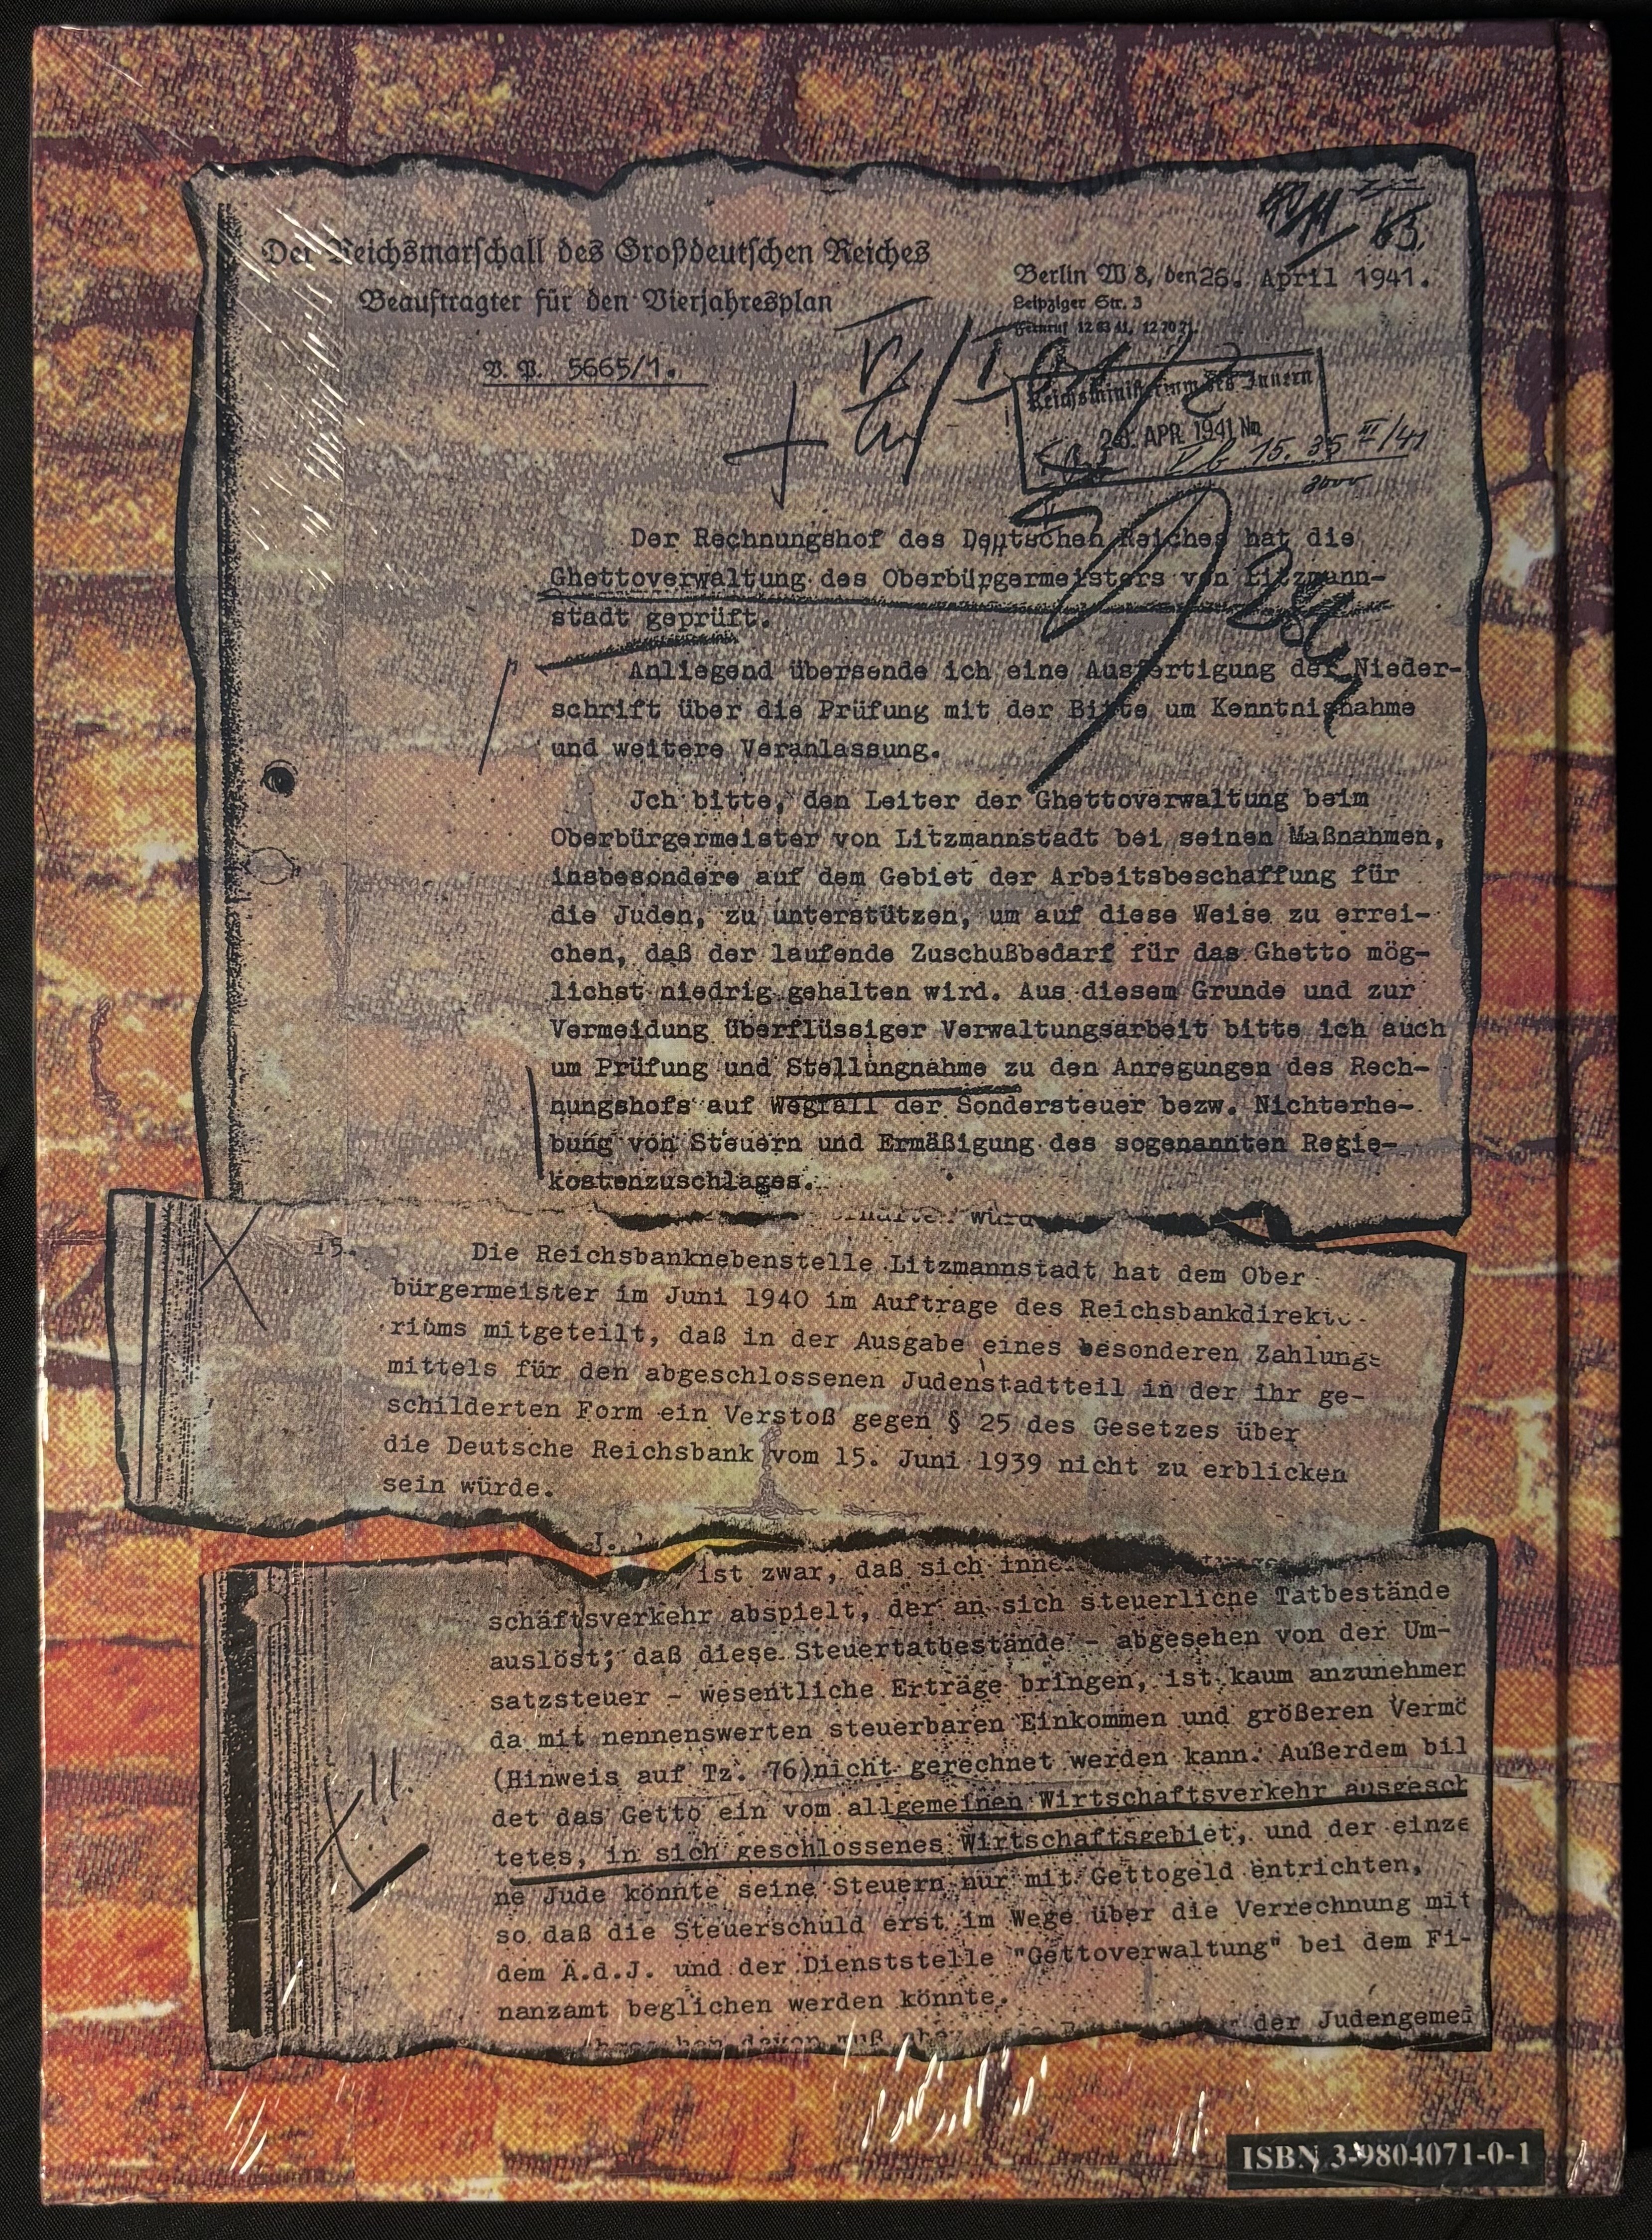 Der Reichsmarschall des Großdeutschen Reiches
Beauftragter für den Vierjahresplan
V. P. 5665/1.
Berlin W 8, den 26. April 1941.
Leipziger Str. 3
Fernruf 12 63 41, 12 70 71.
Reichsministerium des Innern
APR. 1941 Nm
15. 35 III/41
Der Rechnungshof des Deutschen Reiches hat die
Ghettoverwaltung des Oberbürgermeisters von Litzmann-
stadt geprüft.
Anliegend übersende ich eine Ausfertigung der Nieder-
schrift über die Prüfung mit der Bitte um Kenntnisnahme
und weitere Veranlassung.
Jch bitte, den Leiter der Ghettoverwaltung beim
Oberbürgermeister von Litzmannstadt bei seinen Maßnahmen,
insbesondere auf dem Gebiet der Arbeitsbeschaffung für
die Juden, zu unterstützen, um auf diese Weise zu errei-
chen, daß der laufende Zuschußbedarf für das Ghetto mög-
lichst niedrig gehalten wird. Aus diesem Grunde und zur
Vermeidung überflüssiger Verwaltungsarbeit bitte ich auch
um Prüfung und Stellungnahme zu den Anregungen des Rech-
nungshofs auf Wegfall der Sondersteuer bezw. Nichterhe-
bung von Steuern und Ermäßigung des sogenannten Regie-
kostenzuschlages.
15.
Die Reichsbanknebenstelle Litzmannstadt hat dem Ober
bürgermeister im Juni 1940 im Auftrage des Reichsbankdirekto-
riums mitgeteilt, daß in der Ausgabe eines besonderen Zahlungs
mittels für den abgeschlossenen Judenstadtteil in der ihr ge-
schilderten Form ein Verstoß gegen § 25 des Gesetzes über
die Deutsche Reichsbank vom 15. Juni 1939 nicht zu erblicken
sein würde.
ist zwar, daß sich inne
schäftsverkehr abspielt, der an sich steuerliche Tatbestände
auslöst; daß diese Steuertatbestände - abgesehen von der Um-
satzsteuer - wesentliche Erträge bringen, ist kaum anzunehmen
da mit nennenswerten steuerbaren Einkommen und größeren Vermö
(Hinweis auf Tz. 76)nicht gerechnet werden kann. Außerdem bil
det das Getto ein vom allgemeinen Wirtschaftsverkehr ausgesch
tetes, in sich geschlossenes Wirtschaftsgebiet, und der einze
ne Jude könnte seine Steuern nur mit Gettogeld entrichten,
so daß die Steuerschuld erst im Wege über die Verrechnung mit
dem Ä.d.J. und der Dienststelle "Gettoverwaltung" bei dem Fi-
nanzamt beglichen werden könnte.
der Judengemei
ISBN 3-9804071-0-1